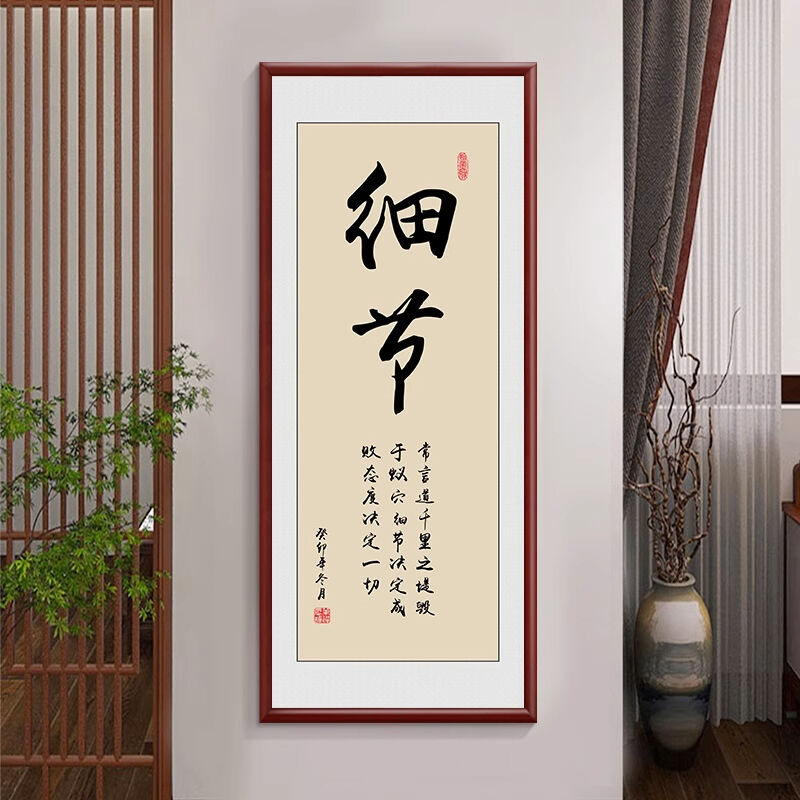 细节
常言道千里之堤毁
于蚁穴细节决定成
败态度决定一切
癸卯年冬月